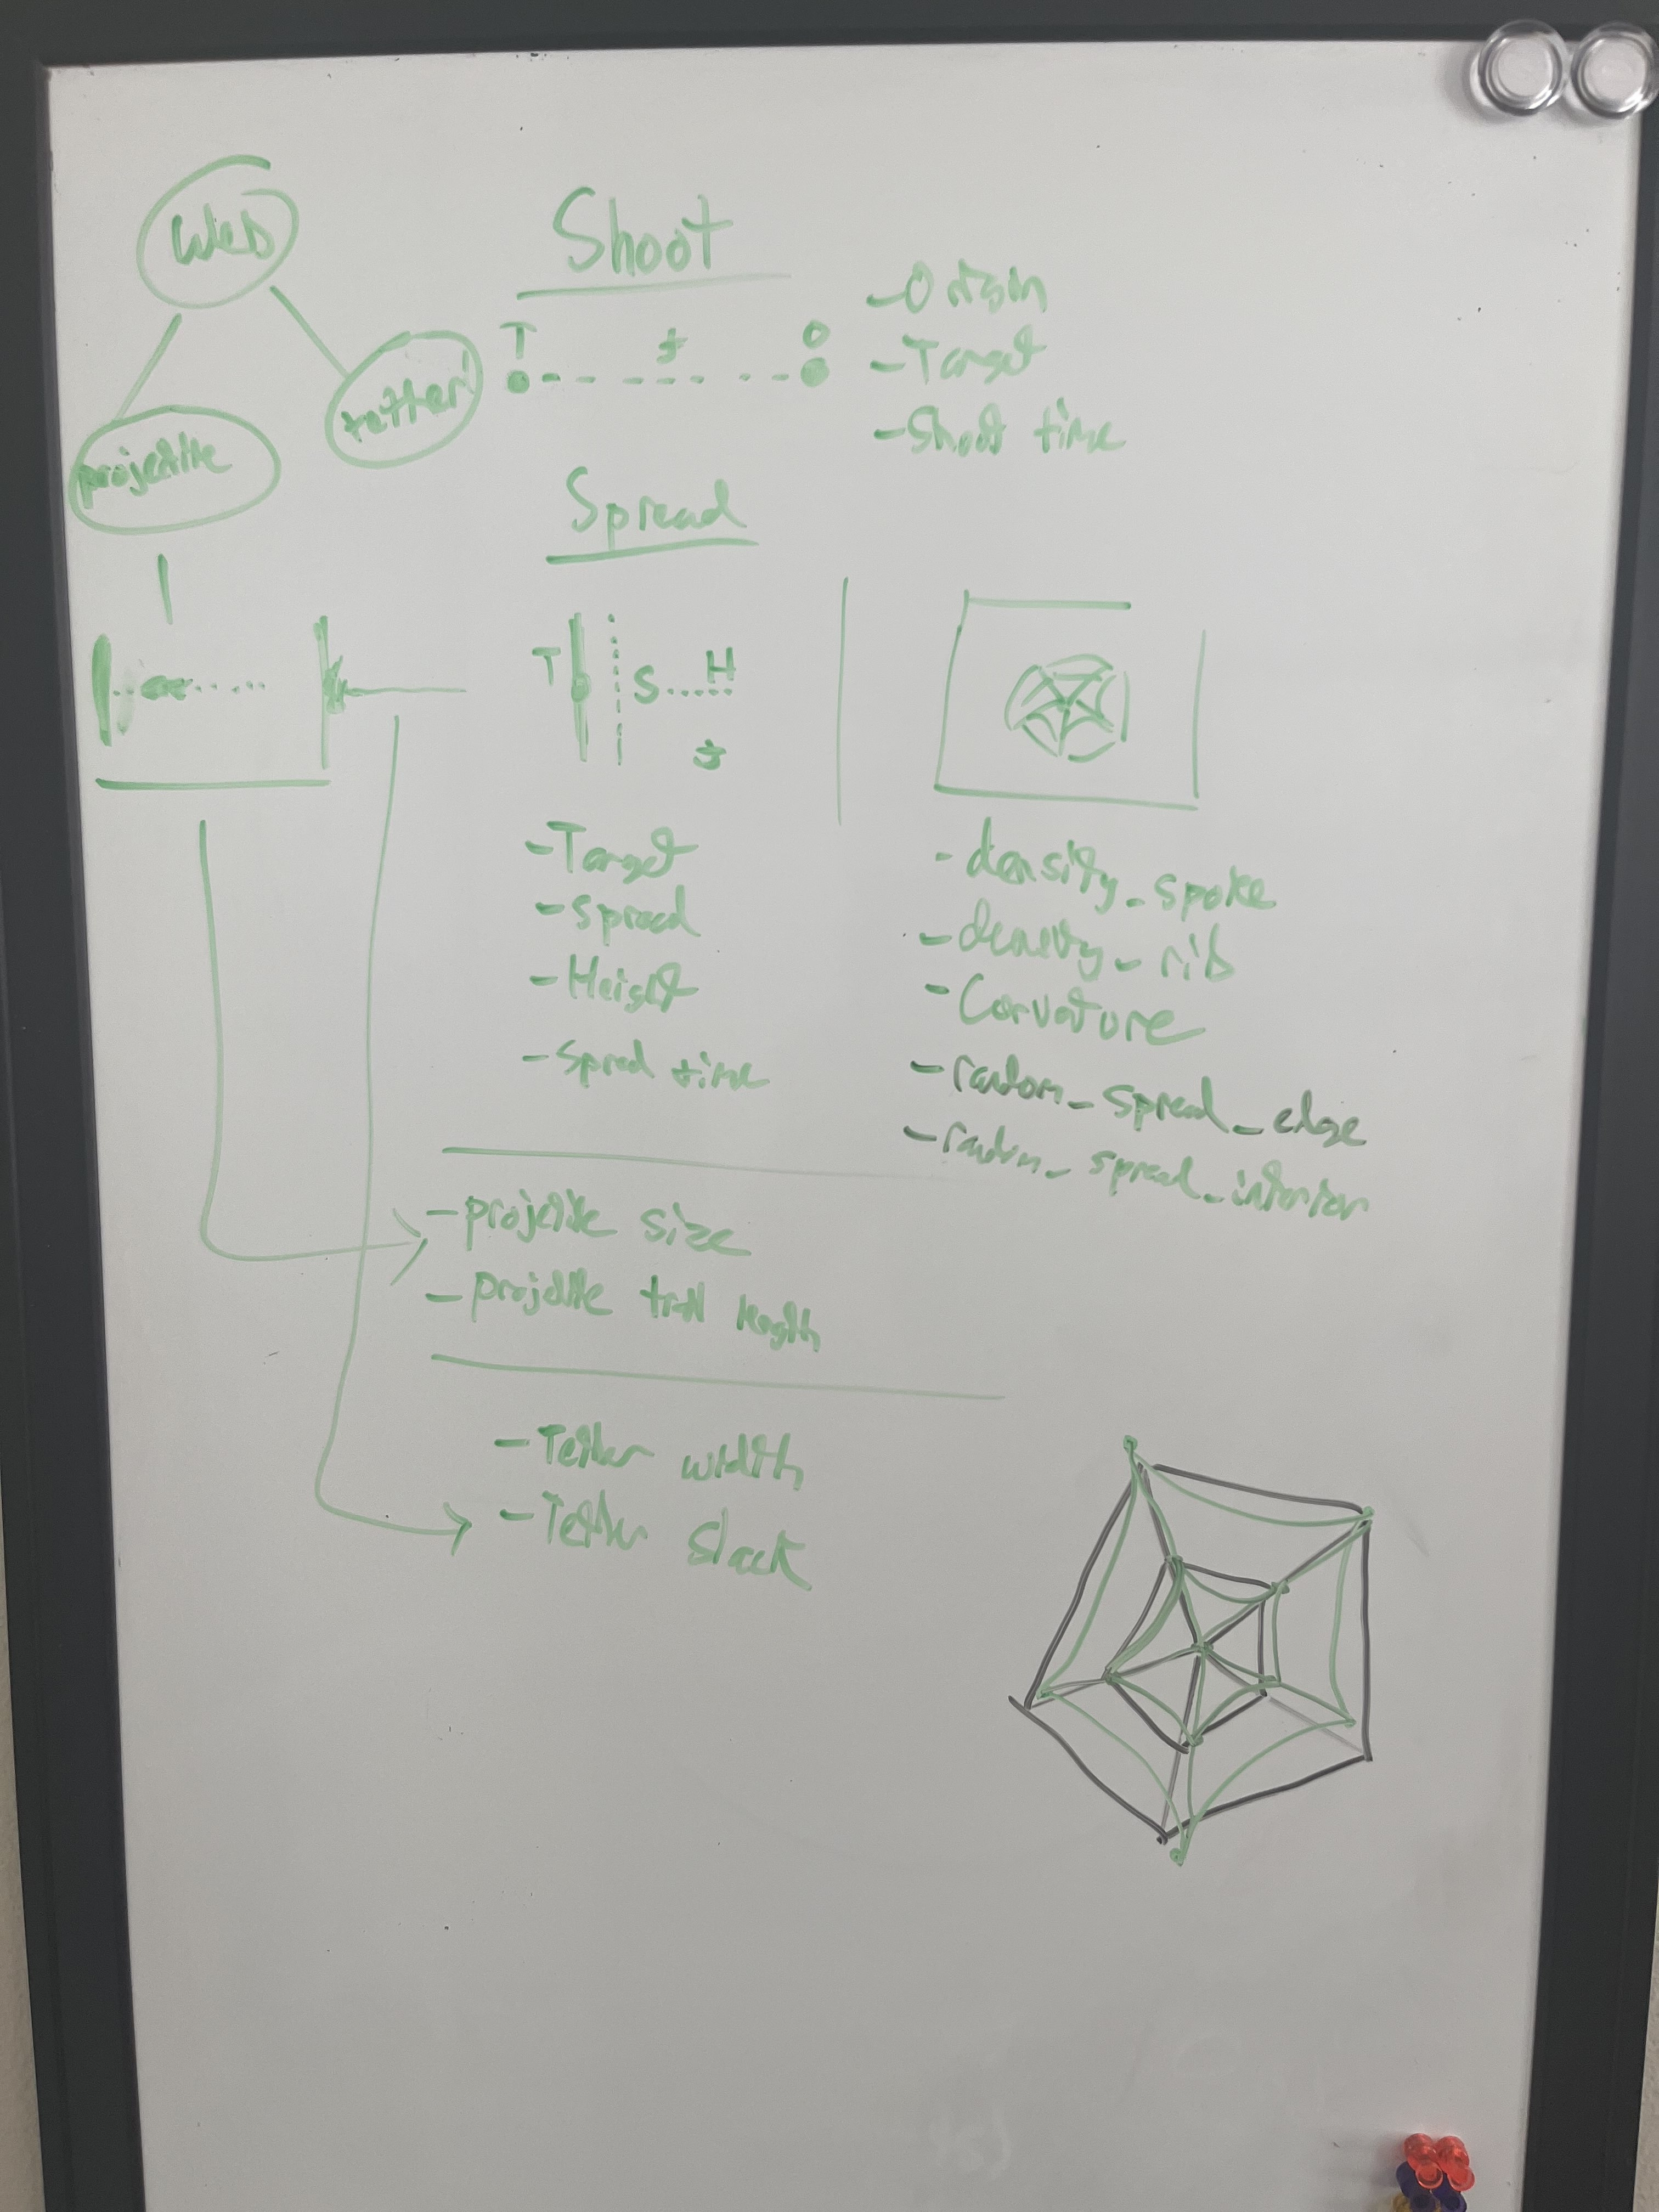 Web
tetter
projectile
Shoot
T t O
- Origin
- Target
- Shoot time
Spread
T S H
t
- Target
- Spread
- Height
- Spred time
- density_spoke
- density_rib
- Curvature
- random_spread_edge
- random_spread_interior
- projectile size
- projectile trail length
- Tether width
- Tether slack